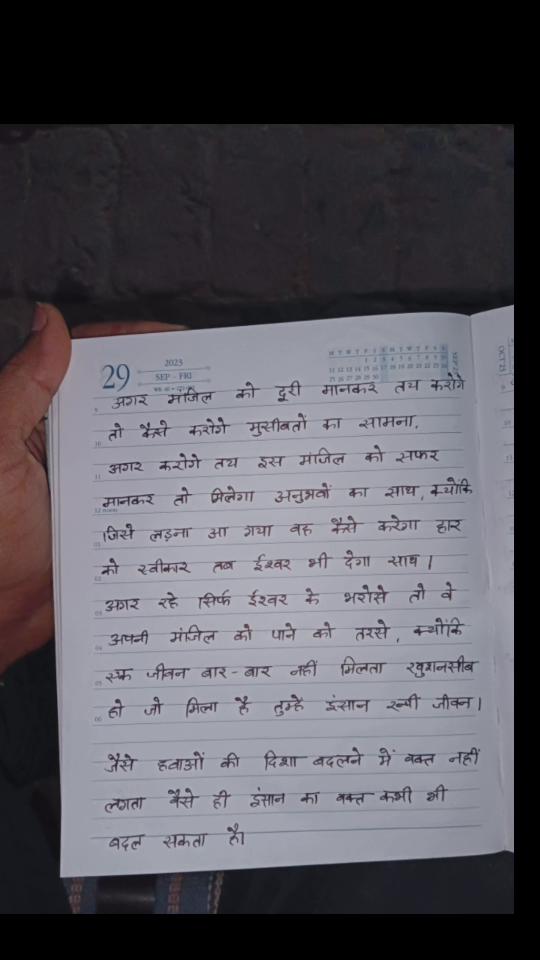 29
2023
SEP - FRI
M T W T F S S M T W T F S S
अगर मंजिल को दूरी मानकर तय करोगे
तो कैसे करोगे मुसीबतों का सामना,
अगर करोगे तय इस मंजिल को सफर
मानकर तो मिलेगा अनुभवों का साथ, क्योंकि
जिसे लड़ना आ गया वह कैसे करेगा हार
को स्वीकार तब ईश्वर भी देगा साथ।
अगर रहे सिर्फ ईश्वर के भरोसे तो वे
अपनी मंजिल को पाने को तरसे, क्योंकि
एक जीवन बार-बार नहीं मिलता खुशनसीब
हो जो मिला है तुम्हें इंसान रूपी जीवन।
जैसे हवाओं की दिशा बदलने में वक्त नहीं
लगता वैसे ही इंसान का वक्त कभी भी
बदल सकता है।